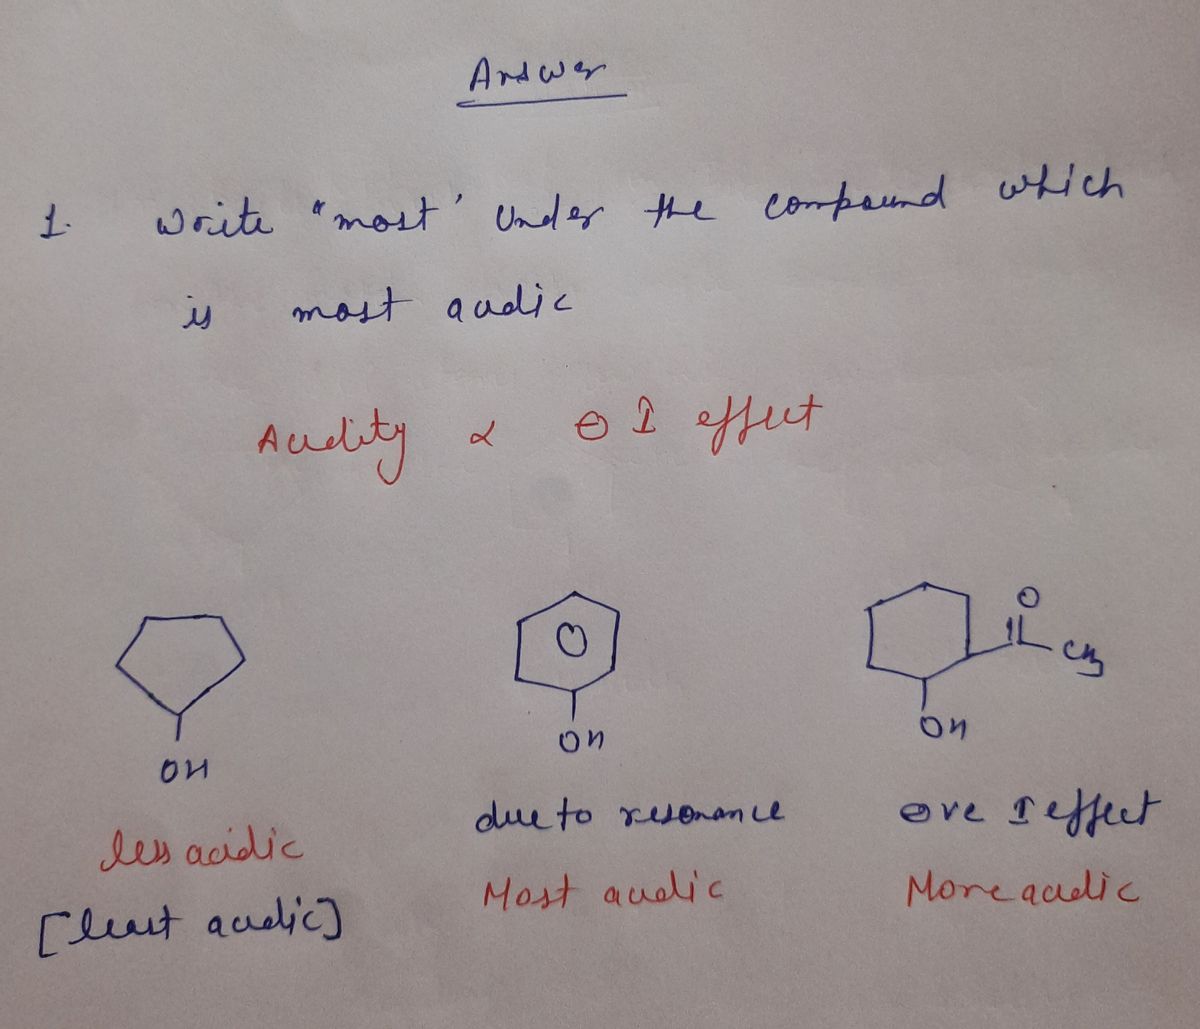 Answer
1. Write "most' Under the compound which
is most acidic
Acidity α ⊖ I effect
O
CH3
OH
OH
OH
due to resonance
⊖ve I effect
less acidic
Most acidic
More acidic
[least acidic]